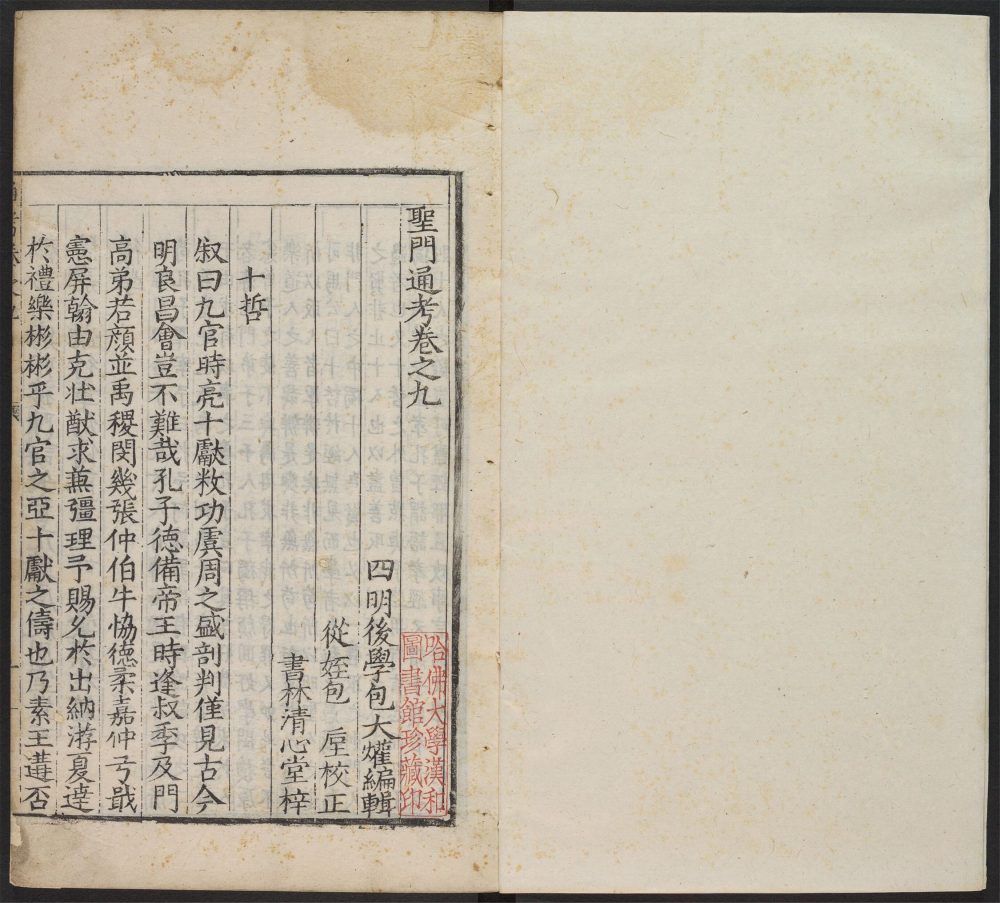 聖門通考卷之九
四明後學包大爟編輯
從姪包 㕓校正
書林清心堂梓
哈佛大學漢和
圖書館珍藏印
十哲
叙曰九官時亮十獻敉功虞周之盛剖判僅見古今
明良昌會豈不難哉孔子德備帝王時逢叔季及門
高弟若顔並禹稷閔幾張仲伯牛恊德柔嘉仲弓戢
憲屏翰由克壯猷求蕪彊理予賜允於出納游夏達
於禮樂彬彬乎九官之亞十獻之儔也乃素王遘否